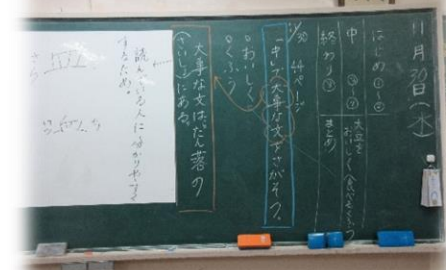 11月30日(水)
はじめ ①~②
中 ③~⑦
大豆をおいしく食べるくふう
終わり ⑧
まとめ
11/30 44ページ
「中」の大事な文をさがそう。
○おいしく
○くふう
大事な文は、だん落の
(さいしょ)にある。
読んでいる人に分かりやすく
するため。